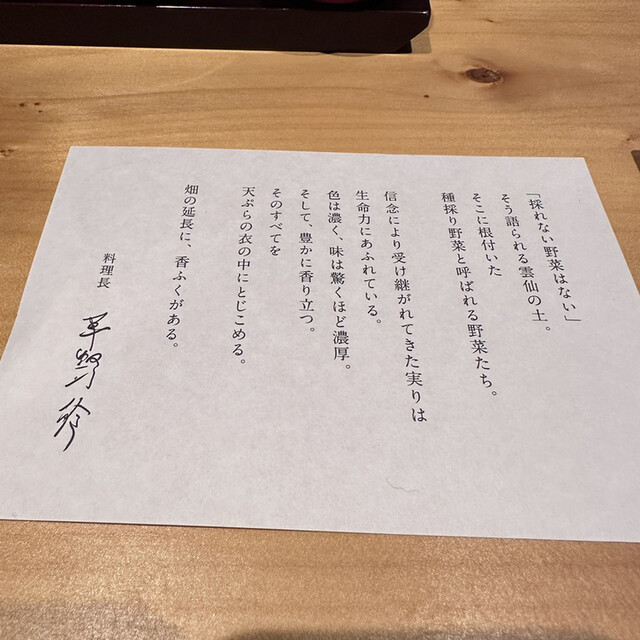 「採れない野菜はない」
そう語られる雲仙の土。
そこに根付いた
種採り野菜と呼ばれる野菜たち。
信念により受け継がれてきた実りは
生命力にあふれている。
色は濃く、味は驚くほど濃厚。
そして、豊かに香り立つ。
そのすべてを
天ぷらの衣の中にとじこめる。
畑の延長に、香ふくがある。
料理長
平野